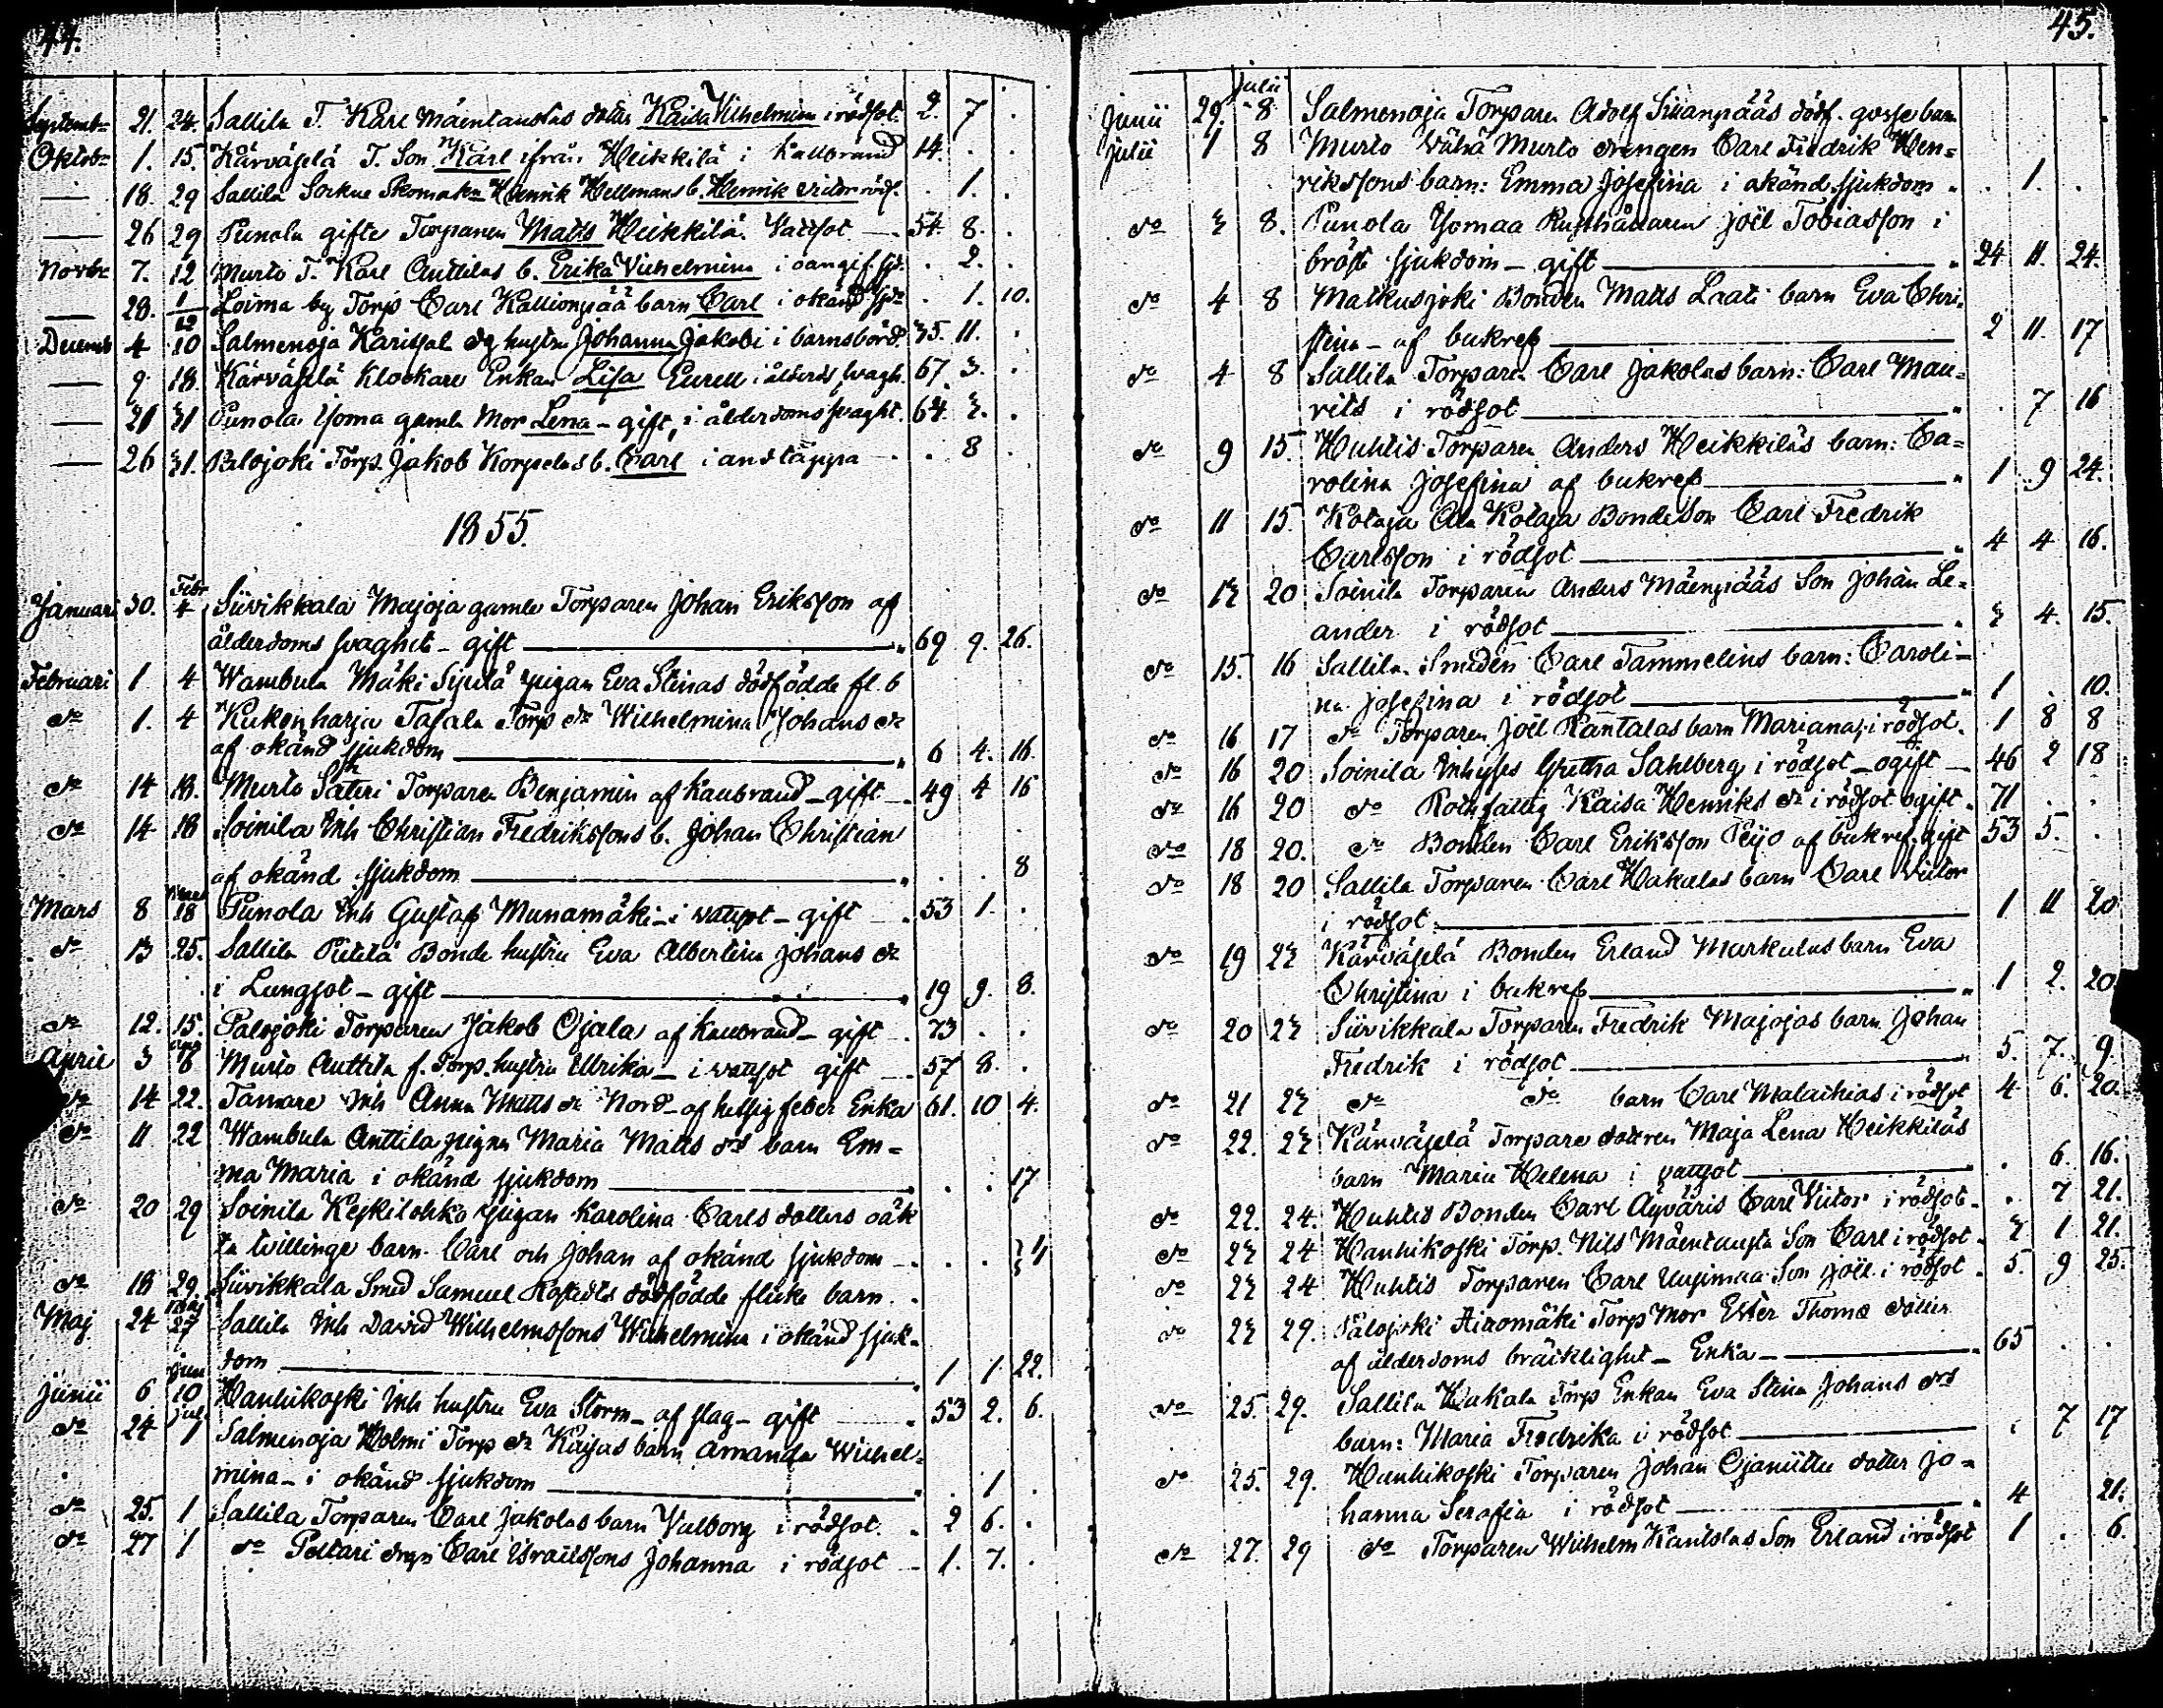 44.
Septembr 21. 24. Sallila T. Karl Mäentaustas dotter Kaisa Vilhelmina i rödsot. 2. 7 .
Oktobr 1. 15. Kärväselä T. Son Karl ifrån Heikkilä i kallbrand 14. . .
— 18. 29 Sallila Sockne Skomakn Henrik Hellmans b. Henrik Victor röds. . 1. .
— 26 29 Punola gifte Torparen Matts Heikkilä Vattsot — 54. 8. .
Novbr 7. 12 Murto T. Karl Anttilas b. Erika Vilhelmina i oangif. sjd. . 2. .
— 28. 1/12 Loima by Torp Carl Kallionpää barn Carl i okänd sjd . 1. 10.
Decemb 4 10 Salmenoja Karisal dg hustru Johanna Jakobi i barnsbörd. 35. 11. .
— 9 18. Kärväselä Klockare Enkan Lisa Eurell i ålderds svagh. 67. 3. .
— 21 31 Punola Isoma gamla Mor Lena - gift, i ålderdomssvaght. 64. 3. .
— 26 31. Palojoki Torp. Jakob Korpelas b. Carl i andtäppa - . 8 .
1855.
Januari 30. Febr 4 Siivikkala Majoja gamle Torparen Johan Eriksson af
ålderdoms svaghet - gift — 69 9. 26.
Februari 1 4 Wambula Mäki Sipilä pigan Eva Stinas dödfödde fl. b
do 1. 4 Kukonharja Tasala Torp dr Wilhelmina Johans dr
af okänd sjukdom — 6 4. 16.
do 14 18. Murto Säteri Torparen Benjamin af kallbrand - gift — 49 4 16
do 14 18 Soinila Inh Christian Fredrikssons b. Johan Christian
af okänd sjukdom — . . 8
Mars 8 Mars 18 Punola Inh Gustaf Munamäki - i vattsot - gift — 53 1. .
do 13 25. Sallila Pietilä Bonde hustru Eva Albertina Johans dr
i Lungsot - gift — 19 9. 8.
do 12. 15. Palojoki Torparen Jakob Ojala af kallbrand - gift . 73 . .
April 3 Apr 8 Murto Anttila f. Torp. hustru Ulrika - i vattsot gift — 57 8. .
do 14 22. Tamare Inh Anna Matts dr Nord - af hetsig feber Enka 61. 10 4.
do 11 22 Wambula Anttila pigan Maria Matts drs barn Em=
ma Maria i okänd sjukdom — . . 17
do 20 29 Soinila Keskilohko pigan Karolina Carls dotters oäk
ta tvillinge barn. Carl och Johan af okänd sjukdom — . .
do 18 29. Siivikkala Smed Samuel Rostedts dödfödde flicke barn.
Maj 24 Maj 27 Sallila Inh David Wilhelmssons Wilhelmina i okänd sjuk=
dom — 1 1 22.
Junii 6 Juni 10 Hanhikoski Inh hustru Eva Storm - af slag - gift — 53 2. 6.
do 24 Jul 1 Salmenoja Holmi Torp dr Kaisas barn Amanda Wilhel=
mina - i okänd sjukdom — . 1 .
do 25. 1 Sallila Torparen Carl Jakolas barn Valborg i rödsot. 2 6. .
do 27 1 do Peltari drgn Carl Israelssons Johanna i rödsot — 1. 7. .
45.
Junii 29. Julii 8 Salmenoja Torparen Adolf Sikanpääs dödf. gosse barn
Julii 1 8 Murto Vähä Murto drengen Carl Fredrik Hen=
rikssons barn: Emma Josefina i okänd sjukdom . . 1. .
do 3 8. Punola Yomaa Rusthållaren Joël Tobiasson i
bröst sjukdom - gift — 24 11. 24.
do 4 8 Matkusjoki Bonden Matts Laati barn Eva Chri=
stina - af bukref — 2 11. 17
do 4 8 Sallila Torparen Carl Jakolas barn: Carl Mau=
rits i rödsot — . 7 16
do 9 15. Huhtis Torparen Anders Heikkiläs barn: Ca=
rolina Josefina af bukref — 1 9 24.
do 11 15. Kotaja Ala Kotaja Bonde Son Carl Fredrik
Carlsson i rödsot — 4 4 16.
do 13 20 Soinila Torparen Anders Mäenpääs Son Johan Le=
ander i rödsot — 3 4. 15.
do 15. 16 Sallila Smeden Carl Tammelins barn: Caroli=
na Josefina i rödsot — 1 . 10.
do 16 17 do Torparen Joël Rantalas barn Mariana, i rödsot. 1 8 8
do 16 20 Soinila Inhyses Gretha Sahlberg i rödsot - ogift — 46 2 18
do 16 20 do Rothfattig Kaisa Henriks dr i rödsot ogift. 71 . .
do 18 20. do Bonden Carl Eriksson Peijo af bukref. gift 53 5. .
do 18 20 Sallila Torparen Carl Hakalas barn Carl Victor
i rödsot — 1 11 20
do 19 23 Kärväselä Bonden Erland Markulas barn Eva
Christina i bukref — 1 2. 20
do 20 23 Siivikkala Torparen Fredrik Majojas barn Johan
Fredrik i rödsot — 5. 7. 9
do 21 23 do do barn Carl Malachias i rödsot 4 6. 20.
do 22. 23 Kärväselä Torpare dotteren Maja Lena Heikkiläs
barn Maria Helena i vattsot — . 6. 16.
do 22. 24. Huhtis Bonden Carl Äyväris Carl Victor i rödsot. . 7 21.
do 23 24 Hanhikoski Torp. Nils Mäentausta Son Carl i rödsot. 3 1 21.
do 23 24 Huhtis Torparen Carl Uusimaa Son Joël i rödsot 5. 9 25.
do 23 29. Palojoki Airomäki Torp Mor Ester Thomæ dotter
af ålderdoms bräcklighet - Enka — 65 . .
do 25. 29. Sallila Hakala Torp Enkan Eva Stina Johans drs
barn: Maria Fredrika i rödsot — . 7 17
do 25. 29. Hanhikoski Torparen Johan Ojaniittu dotter Jo=
hanna Serafia i rödsot — 4 21.
do 27. 29 do Torparen Wilhelm Kantolas Son Erland i rödsot 1 . 6.